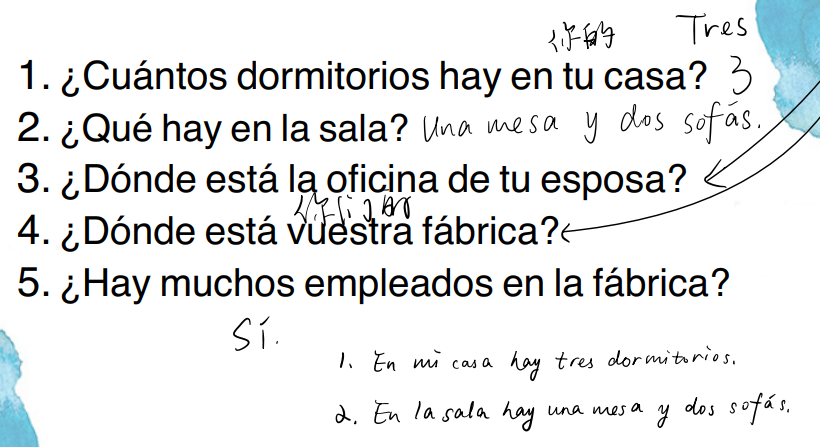 你的 Tres
1. ¿Cuántos dormitorios hay en tu casa? 3
2. ¿Qué hay en la sala? Una mesa y dos sofás.
3. ¿Dónde está la oficina de tu esposa?
你们的
4. ¿Dónde está vuestra fábrica?
5. ¿Hay muchos empleados en la fábrica?
Sí.
1. En mi casa hay tres dormitorios.
2. En la sala hay una mesa y dos sofás.